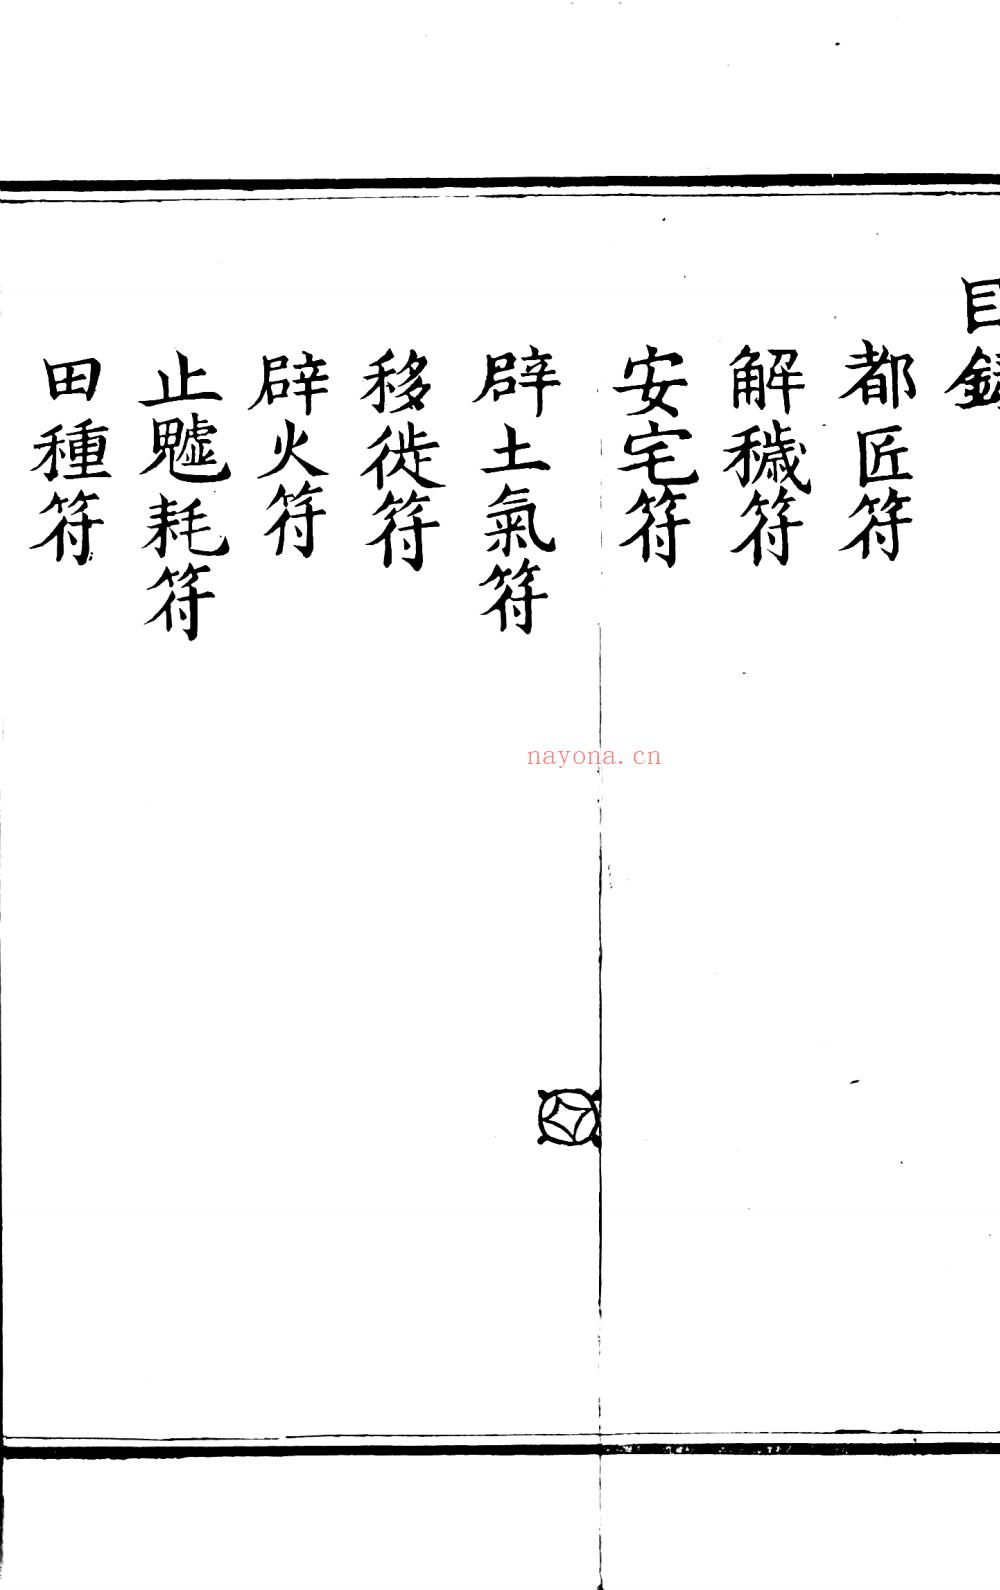 目錄
都匠符
解穢符
安宅符
辟土氣符
移徙符
辟火符
止魖耗符
田種符
nayona.cn